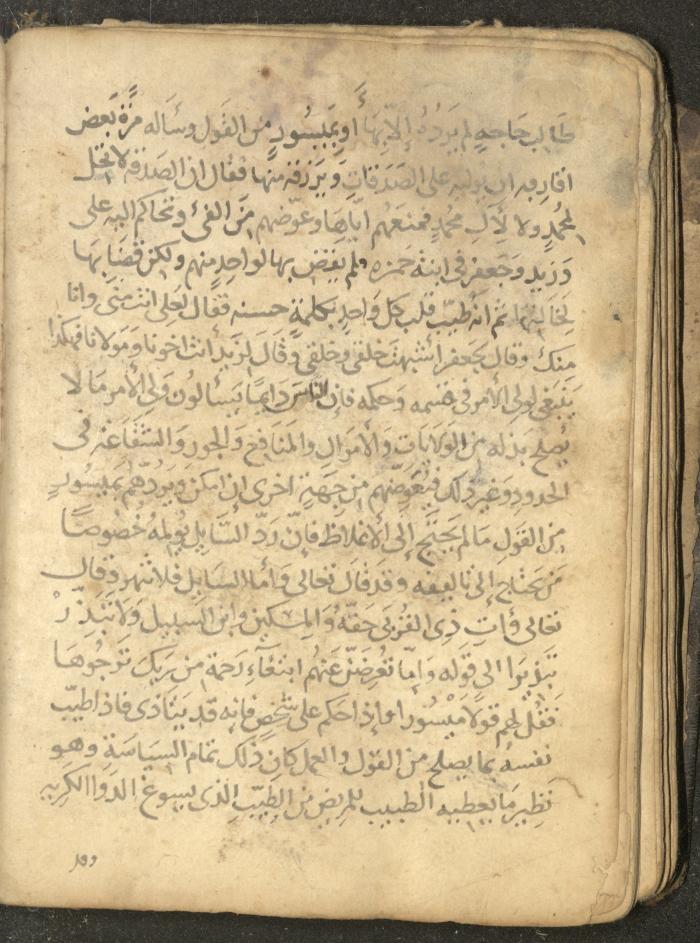 طالب حاجة لم يرده إلا بها أو بميسور من القول وسأله مرة بعض
اقاربه ان يوليه على الصدقات ويرزقه منها فقال ان الصدقة لا تحل
لمحمد ولا لآل محمد فمنعهم اياها وعوضهم من الفئ وتحاكم اليه على
وزيد وجعفر في ابنة حمزه فلم يقض بها لواحد منهم ولكن قضا بها
لخالتها ثم انه طيب قلب كل واحد بكلمة حسنه فقال لعلى انت منى وانا
منك وقال لجعفر اشبهت خلقى وخلقى وقال لزيد انت اخونا ومولانا فهكذا
ينبغى لولى الأمر فى قسمه وحكمه فان الناس دايما يسالون ولى الأمر ما لا
يصلح بذله من الولايات والأموال والمنافع والجور والشفاعة فى
الحدود وغير ذلك فيعوضهم من جهة اخرى ان امكن ويردهم بميسور
من القول ما لم يحتج إلى الأغلاظ فإن رد السايل يولمه خصوصا
من يحتاج إلى تاليفه وقد قال تعالى وأما السايل فلا تنهر وقال
تعالى وآت ذى القربى حقه والمسكين وابن السبيل ولا تبذر
تبذيرا الى قوله وإما تعرضن عنهم ابتغآء رحمة من ربك ترجوها
فقل لهم قولا ميسورا وإذا حكم على شخص فإنه قد يتاذى فاذا طيب
نفسه بما يصلح من القول والعمل كان ذلك تمام السياسة وهو
نظير ما يعطيه الطبيب للمريض من الطيب الذى يسوغ الدوا الكريه